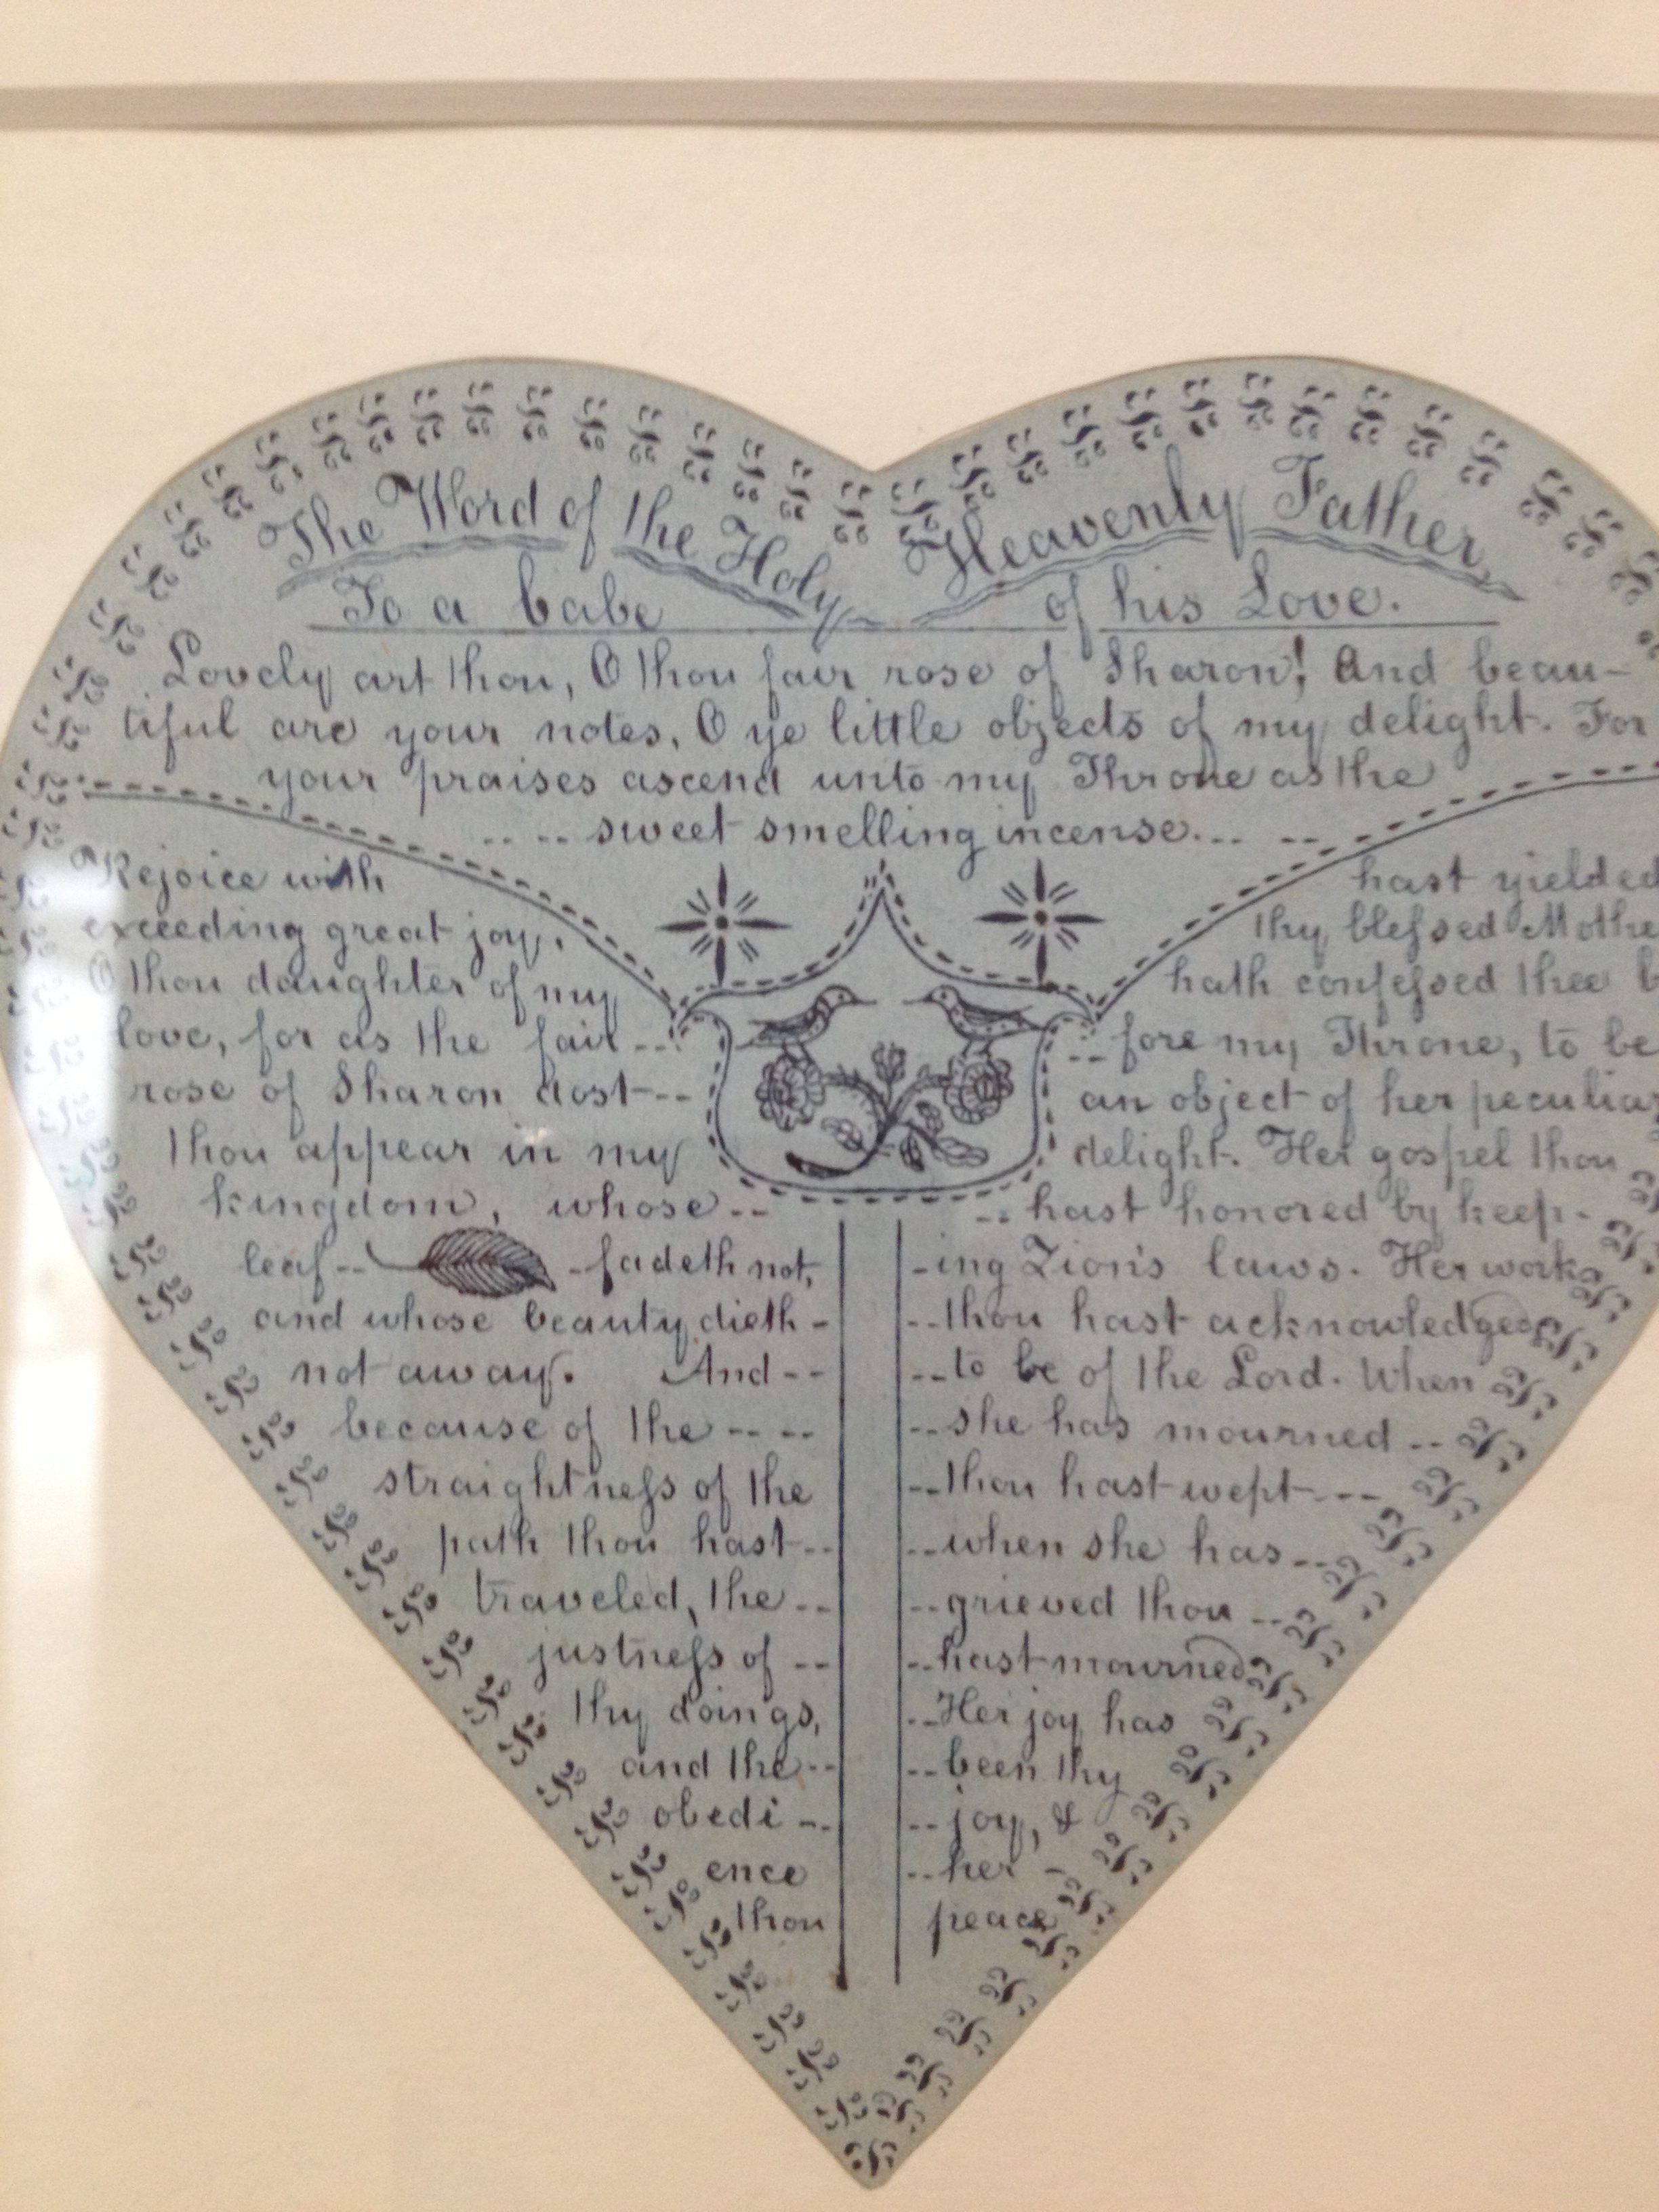 The Word of the Holy Heavenly Father
To a babe of his Love.
Lovely art thou, O thou fair rose of Sharon! And beau-
tiful are your notes, O ye little objects of my delight. For
your praises ascend unto my Throne as the
---- sweet smelling incense.-- --
Rejoice with
exceeding great joy,
O thou daughter of my
love, for as the fair --
rose of Sharon dost --
thou appear in my
kingdom, whose --
leaf -- - fadeth not,
and whose beauty dieth -
not away. And --
because of the -- --
straightneſs of the
path thou hast --
traveled, the --
justneſs of --
thy doings,
and the --
obedi --
ence
thou
hast yielded
thy bleſsed Mothe
hath confeſsed thee b
-- fore my Throne, to be
an object of her peculiar
delight. Her gospel thou
-- hast honored by keep-
-ing Zion's laws. Her work
-- thou hast acknowledged
-- to be of the Lord. When
-- she has mourned --
-- thou hast wept ---
-- when she has --
-- grieved thou --
-- hast mourned
-- Her joy has
-- been thy
-- joy, &
-- her -
peace